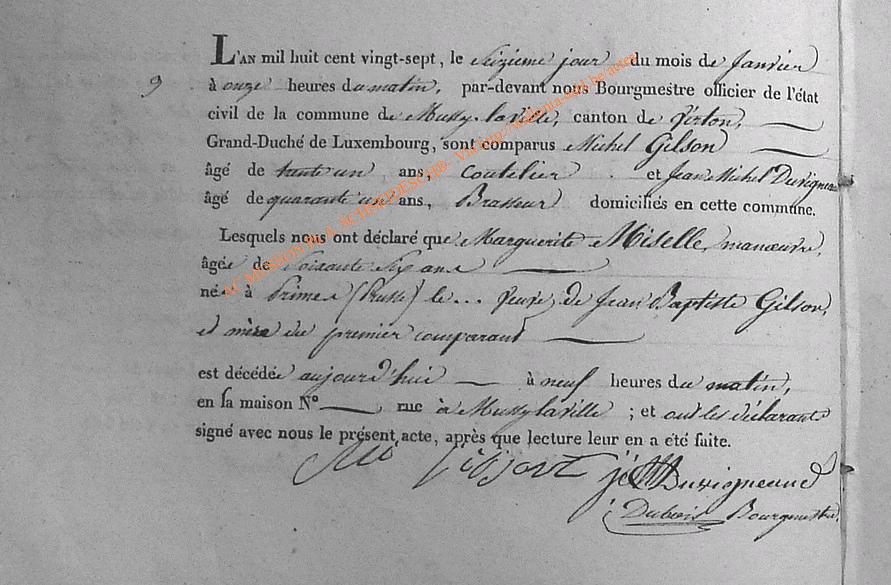 L'AN mil huit cent vingt-sept, le Seizieme jour du mois de Janvier
9 à onze heures du matin, par-devant nous Bourgmestre officier de l'état
civil de la commune de Mussy-laville, canton de Virton,
Grand-Duché de Luxembourg, sont comparus Michel Gilson
âgé de trente un ans, Coutelier et Jean Michel Duvigneau
âgé de quarante un ans, Brasseur domiciliés en cette commune.
Lesquels nous ont déclaré que Marguerite Miselle, manœuvre,
âgée de Soixante Six ans
née à (Prusse) le ... veuve de Jean Baptiste Gilson,
et mère du premier comparant
est décédée aujourd'hui à neuf heures du matin,
en sa maison N° rue à Mussy laville ; et ont les déclarants
signé avec nous le présent acte, après que lecture leur en a été faite.
Duvigneaud
Dubois Bourgmestre